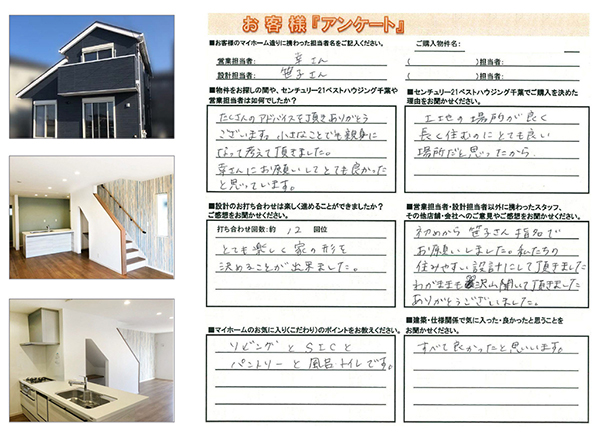 お客様『アンケート』
■お客様のマイホーム造りに携わった担当者名をご記入ください。
営業担当者: 幸さん
設計担当者: 笹子さん
ご購入物件名:
( )担当者:
( )担当者:
■物件をお探しの間や、センチュリー21ベストハウジング千葉や
営業担当者は如何でしたか?
たくさんのアドバイスを頂きありがとう
ございます。小さなことでも親身に
なって考えて頂きました。
幸さんにお願いしてとても良かった
と思っています。
■センチュリー21ベストハウジング千葉でご購入を決めた
理由をお聞かせください。
土地の場所が良く
長く住むのにとても良い
場所だと思ったから。
■設計のお打ち合わせは楽しく進めることができましたか?
ご感想をお聞かせください。
打ち合わせ回数:約 12 回位
とても楽しく家の形を
決めることが出来ました。
■営業担当者・設計担当者以外に携わったスタッフ、
その他店舗・会社へのご意見やご感想をお聞かせください。
初めから笹子さん指名で
お願いしました。私たちの
住みやすい設計にして頂きました
わがままも沢山聞いて頂きました
ありがとうございました。
■マイホームのお気に入り(こだわり)のポイントをお教えください。
リビングとSICと
パントリーと風呂トイレです。
■建築・仕様関係で気に入った・良かったと思うことを
お聞かせください。
すべて良かったと思います。